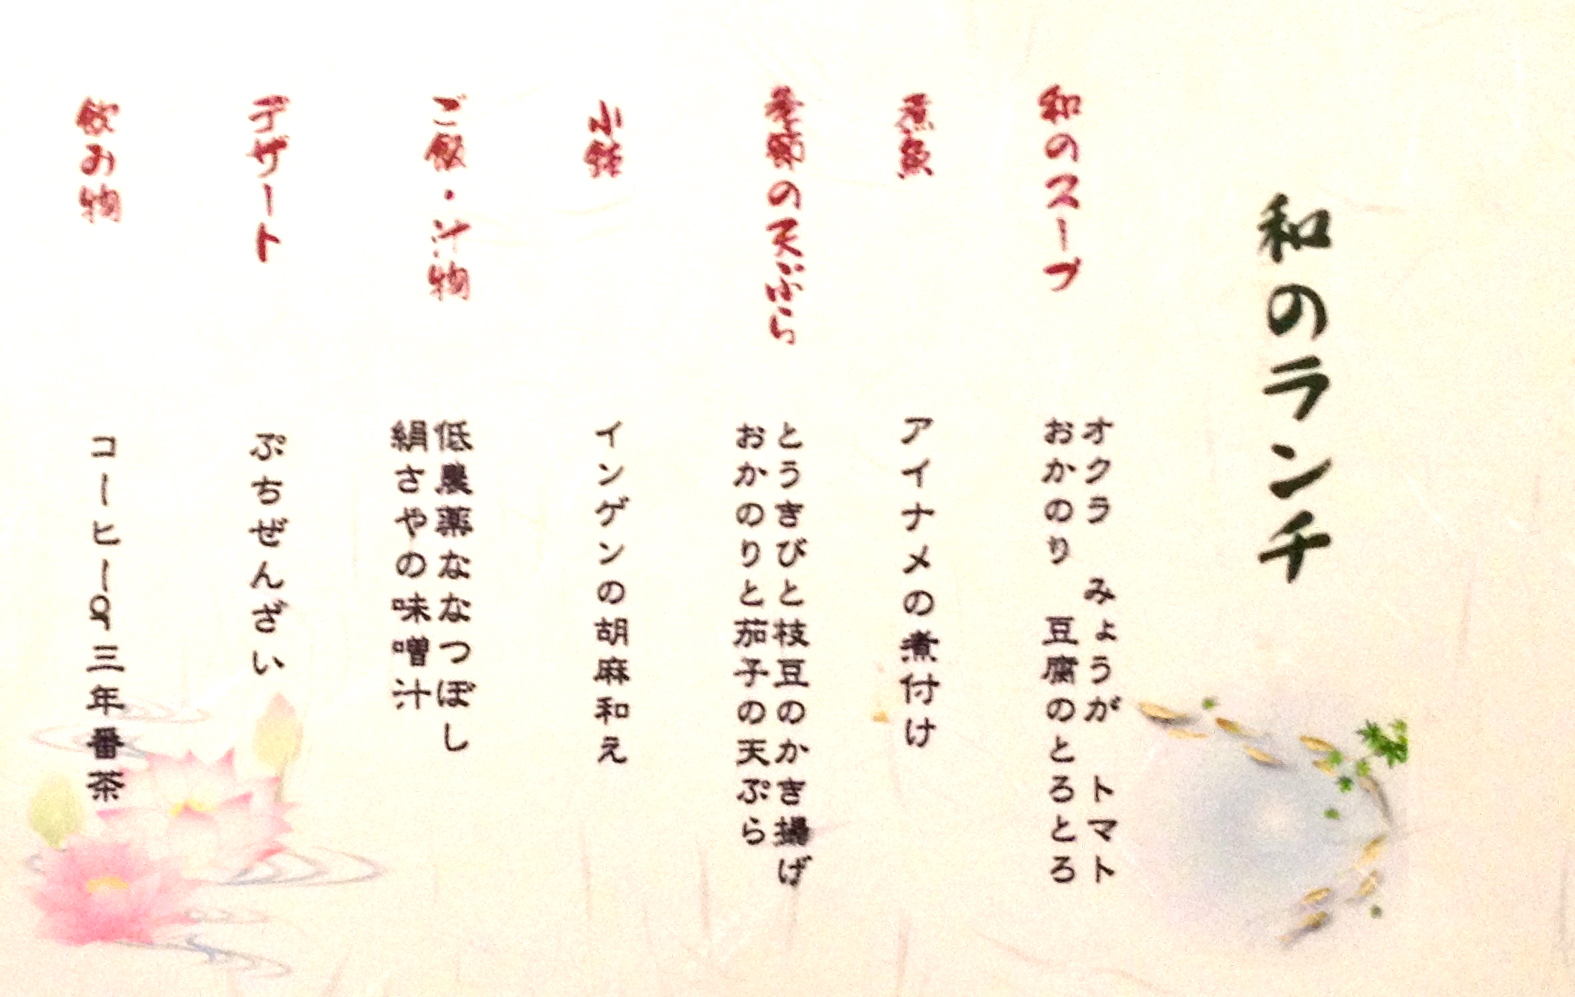 和のランチ
和のスープ
オクラ　みょうが　トマト
おかのり　豆腐のとろとろ
煮魚
アイナメの煮付け
季節の天ぷら
とうきびと枝豆のかき揚げ
おかのりと茄子の天ぷら
小鉢
インゲンの胡麻和え
ご飯・汁物
低農薬ななつぼし
絹さやの味噌汁
デザート
ぷちぜんざい
飲み物
コーヒーor三年番茶